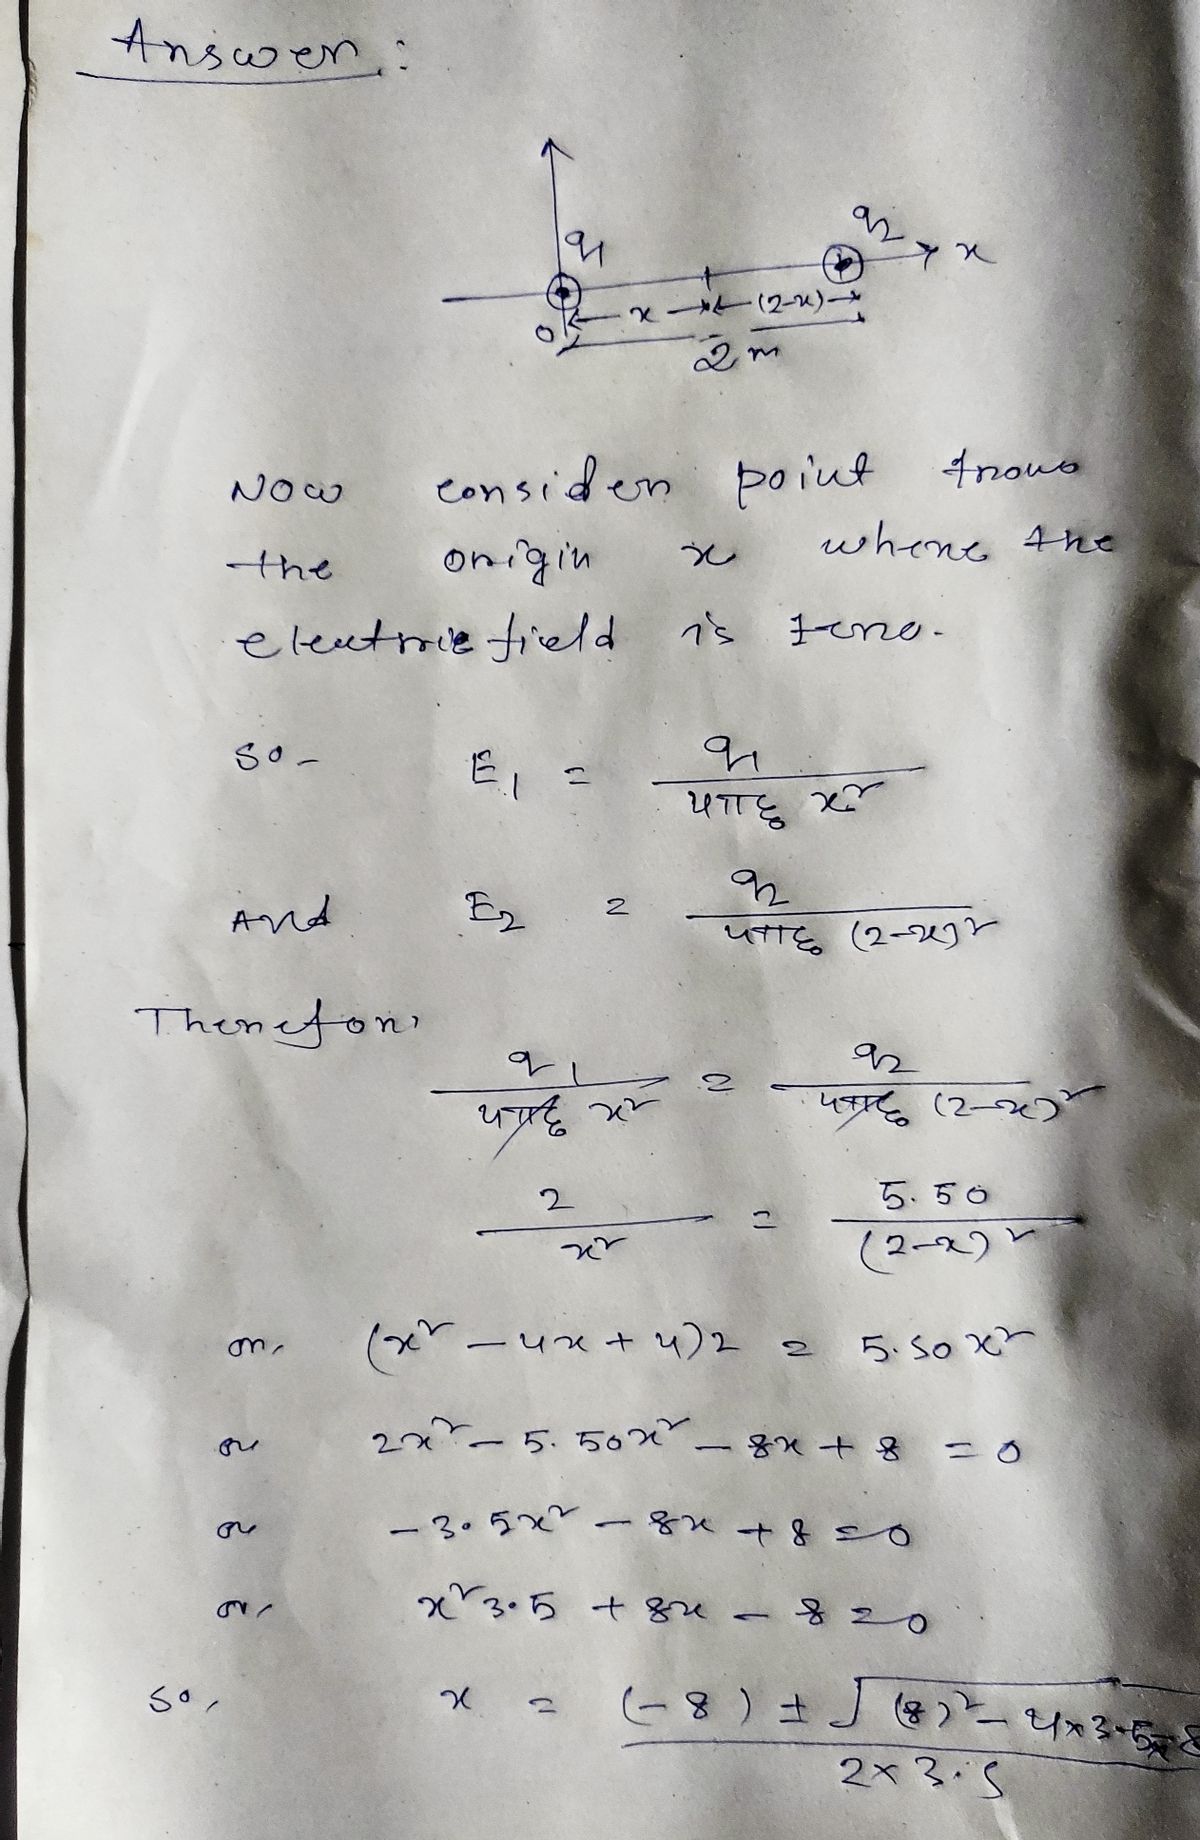 Answer:
q1 q2 x
0 x (2-x)
2m
Now consider point from
the origin x where the
electric field is zero.
so- E1 = q1 / 4πε0 x²
And E2 = q2 / 4πε0 (2-x)²
Therefor,
q1 / 4πε0 x² = q2 / 4πε0 (2-x)²
2 / x² = 5.50 / (2-x)²
or, (x² - 4x + 4)2 = 5.50x²
or 2x² - 5.50x² - 8x + 8 = 0
or -3.5x² - 8x + 8 = 0
or, x²3.5 + 8x - 8 = 0
so, x = (-8) ± √(8)² - 4×3.5×-8 / 2×3.5